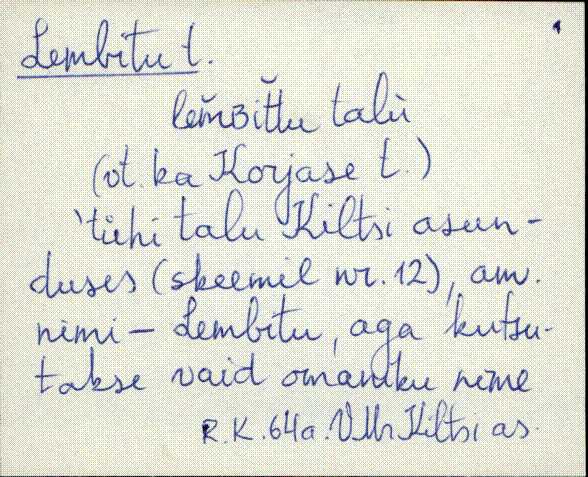 Lembitu t.
lem̆ʙit̆tu talù
(vt. ka Korjase t.)
'tühi talu Kiltsi asun-
duses (skeemil nr. 12), am.
nimi – Lembitu, aga kutsu-
takse vaid omaniku nime
R.K. 64a. VMr Kiltsi as.